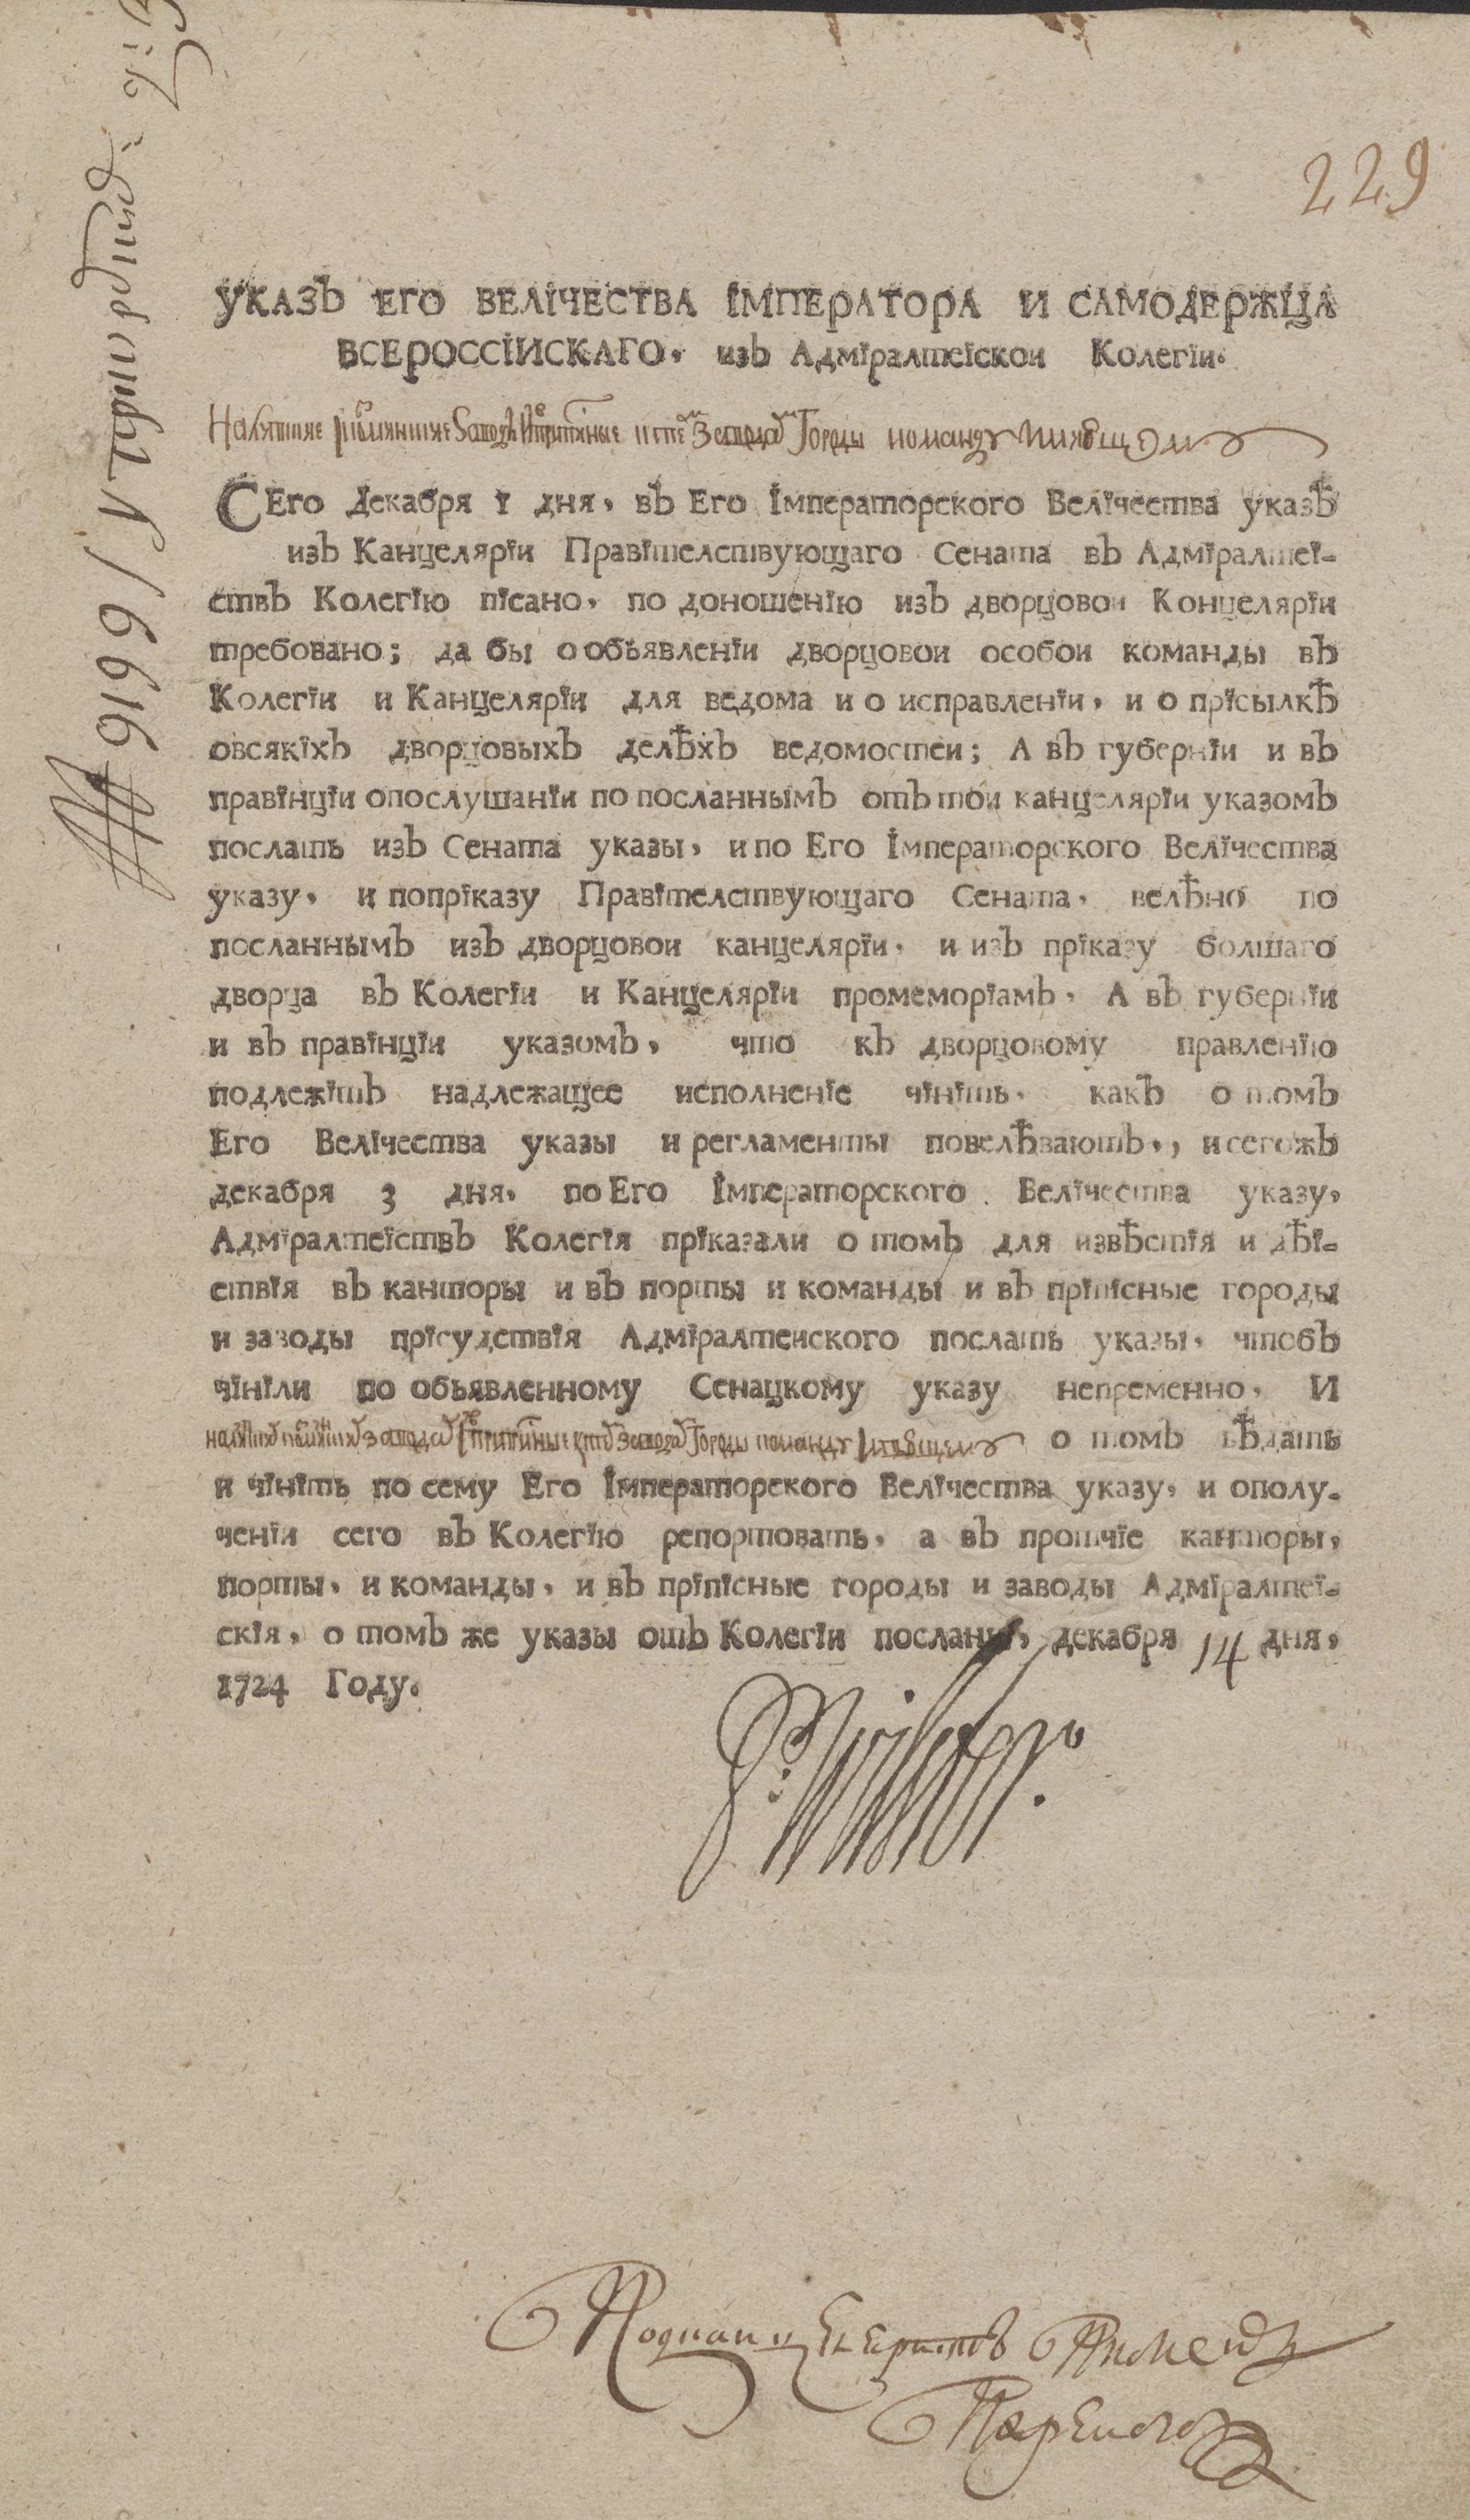 229
УКАЗЪ ЕГО ВЕЛІЧЕСТВА ІМПЕРАТОРА И САМОДЕРЖЦА
ВСЕРОССІИСКАГО, изЪ Адміралтеіскои Колегіи.
команду
СЕго Декабря 1 дня, вЪ Его Імператорского Велічества указѢ
изЪ Канцеляріи Правітелствующаго Сената вЪ Адміралтеі-
ствЪ Колегію пісано, по доношенію изЪ дворцовои Концеляріи
требовано; да бы о объявленіи дворцовои особои команды вЪ
Колегіи и Канцеляріи для ведома и о исправленіи, и о прісылкѢ
овсякіхЪ дворцовыхЪ делѢхЪ ведомостеи; А вЪ губерніи и вЪ
правінціи опослушаніи по посланнымЪ отЪ тои канцеляріи указомЪ
послать изЪ Сената указы, и по Его Імператорского Велічества
указу, и попріказу Правітелствующаго Сената, велѢно по
посланнымЪ изЪ дворцовои канцеляріи, и изЪ пріказу болшаго
дворца вЪ Колегіи и Канцеляріи промеморіамЪ, А вЪ губерніи
и вЪ правінціи указомЪ, что кЪ дворцовому правленію
подлежітЪ надлежащее исполненіе чініть, какЪ о томЪ
Его Велічества указы и регламенты повелѢваютЪ,, и сегожЪ
декабря 3 дня, по Его Імператорского Велічества указу,
АдміралтеіствЪ Колегія пріказали о томЪ для извѢстія и дѢі-
ствія вЪ канторы и вЪ порты и команды и вЪ пріпісные городы
и заводы прісудствія Адміралтеиского послать указы, чтобЪ
чініли по объявленному Сенацкому указу непременно, И
команду о томЪ вѢдать
и чініть по сему Его Імператорского Велічества указу, и ополу-
ченіи сего вЪ Колегію репортовать, а вЪ протчіе канторы,
порты, и команды, и вЪ пріпісные городы и заводы Адміралтеі-
скія, о томЪ же указы отЪ Колегіи посланы, декабря 14 дня,
1724 Году.